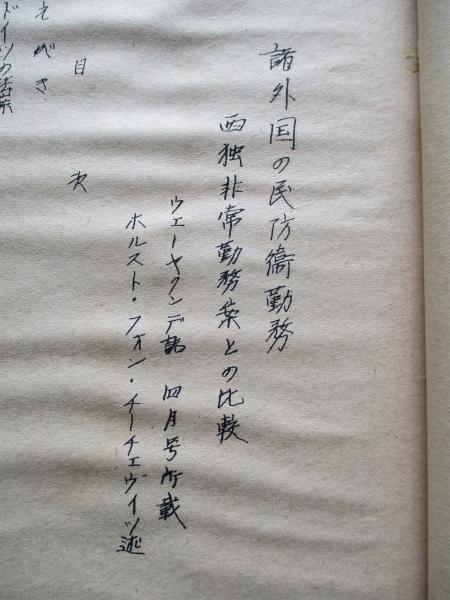 諸外国の民防衛勤務
西独非常勤務案との比較
ウェーヤクンデ誌 四月号所載
ホルスト・フォン・チーチェヴイツ述
目 次
えがき
ドイツの